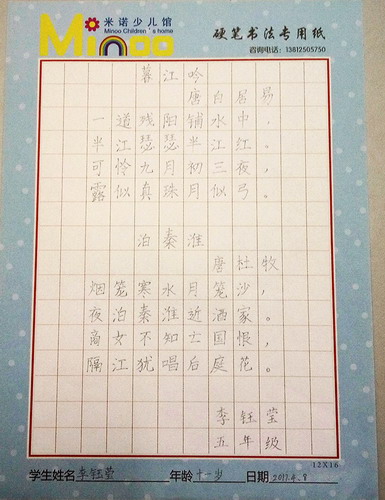 米诺少儿馆
Minoo
Minoo Children's home
硬笔书法专用纸
咨询电话：13812505750
暮江吟
唐 白居易
一道残阳铺水中，
半江瑟瑟半江红。
可怜九月初三夜，
露似真珠月似弓。
泊秦淮
唐 杜牧
烟笼寒水月笼沙，
夜泊秦淮近酒家。
商女不知亡国恨，
隔江犹唱后庭花。
李钰莹
五年级
12X16
学生姓名 李钰莹 年龄 十一岁 日期 2017.4.8